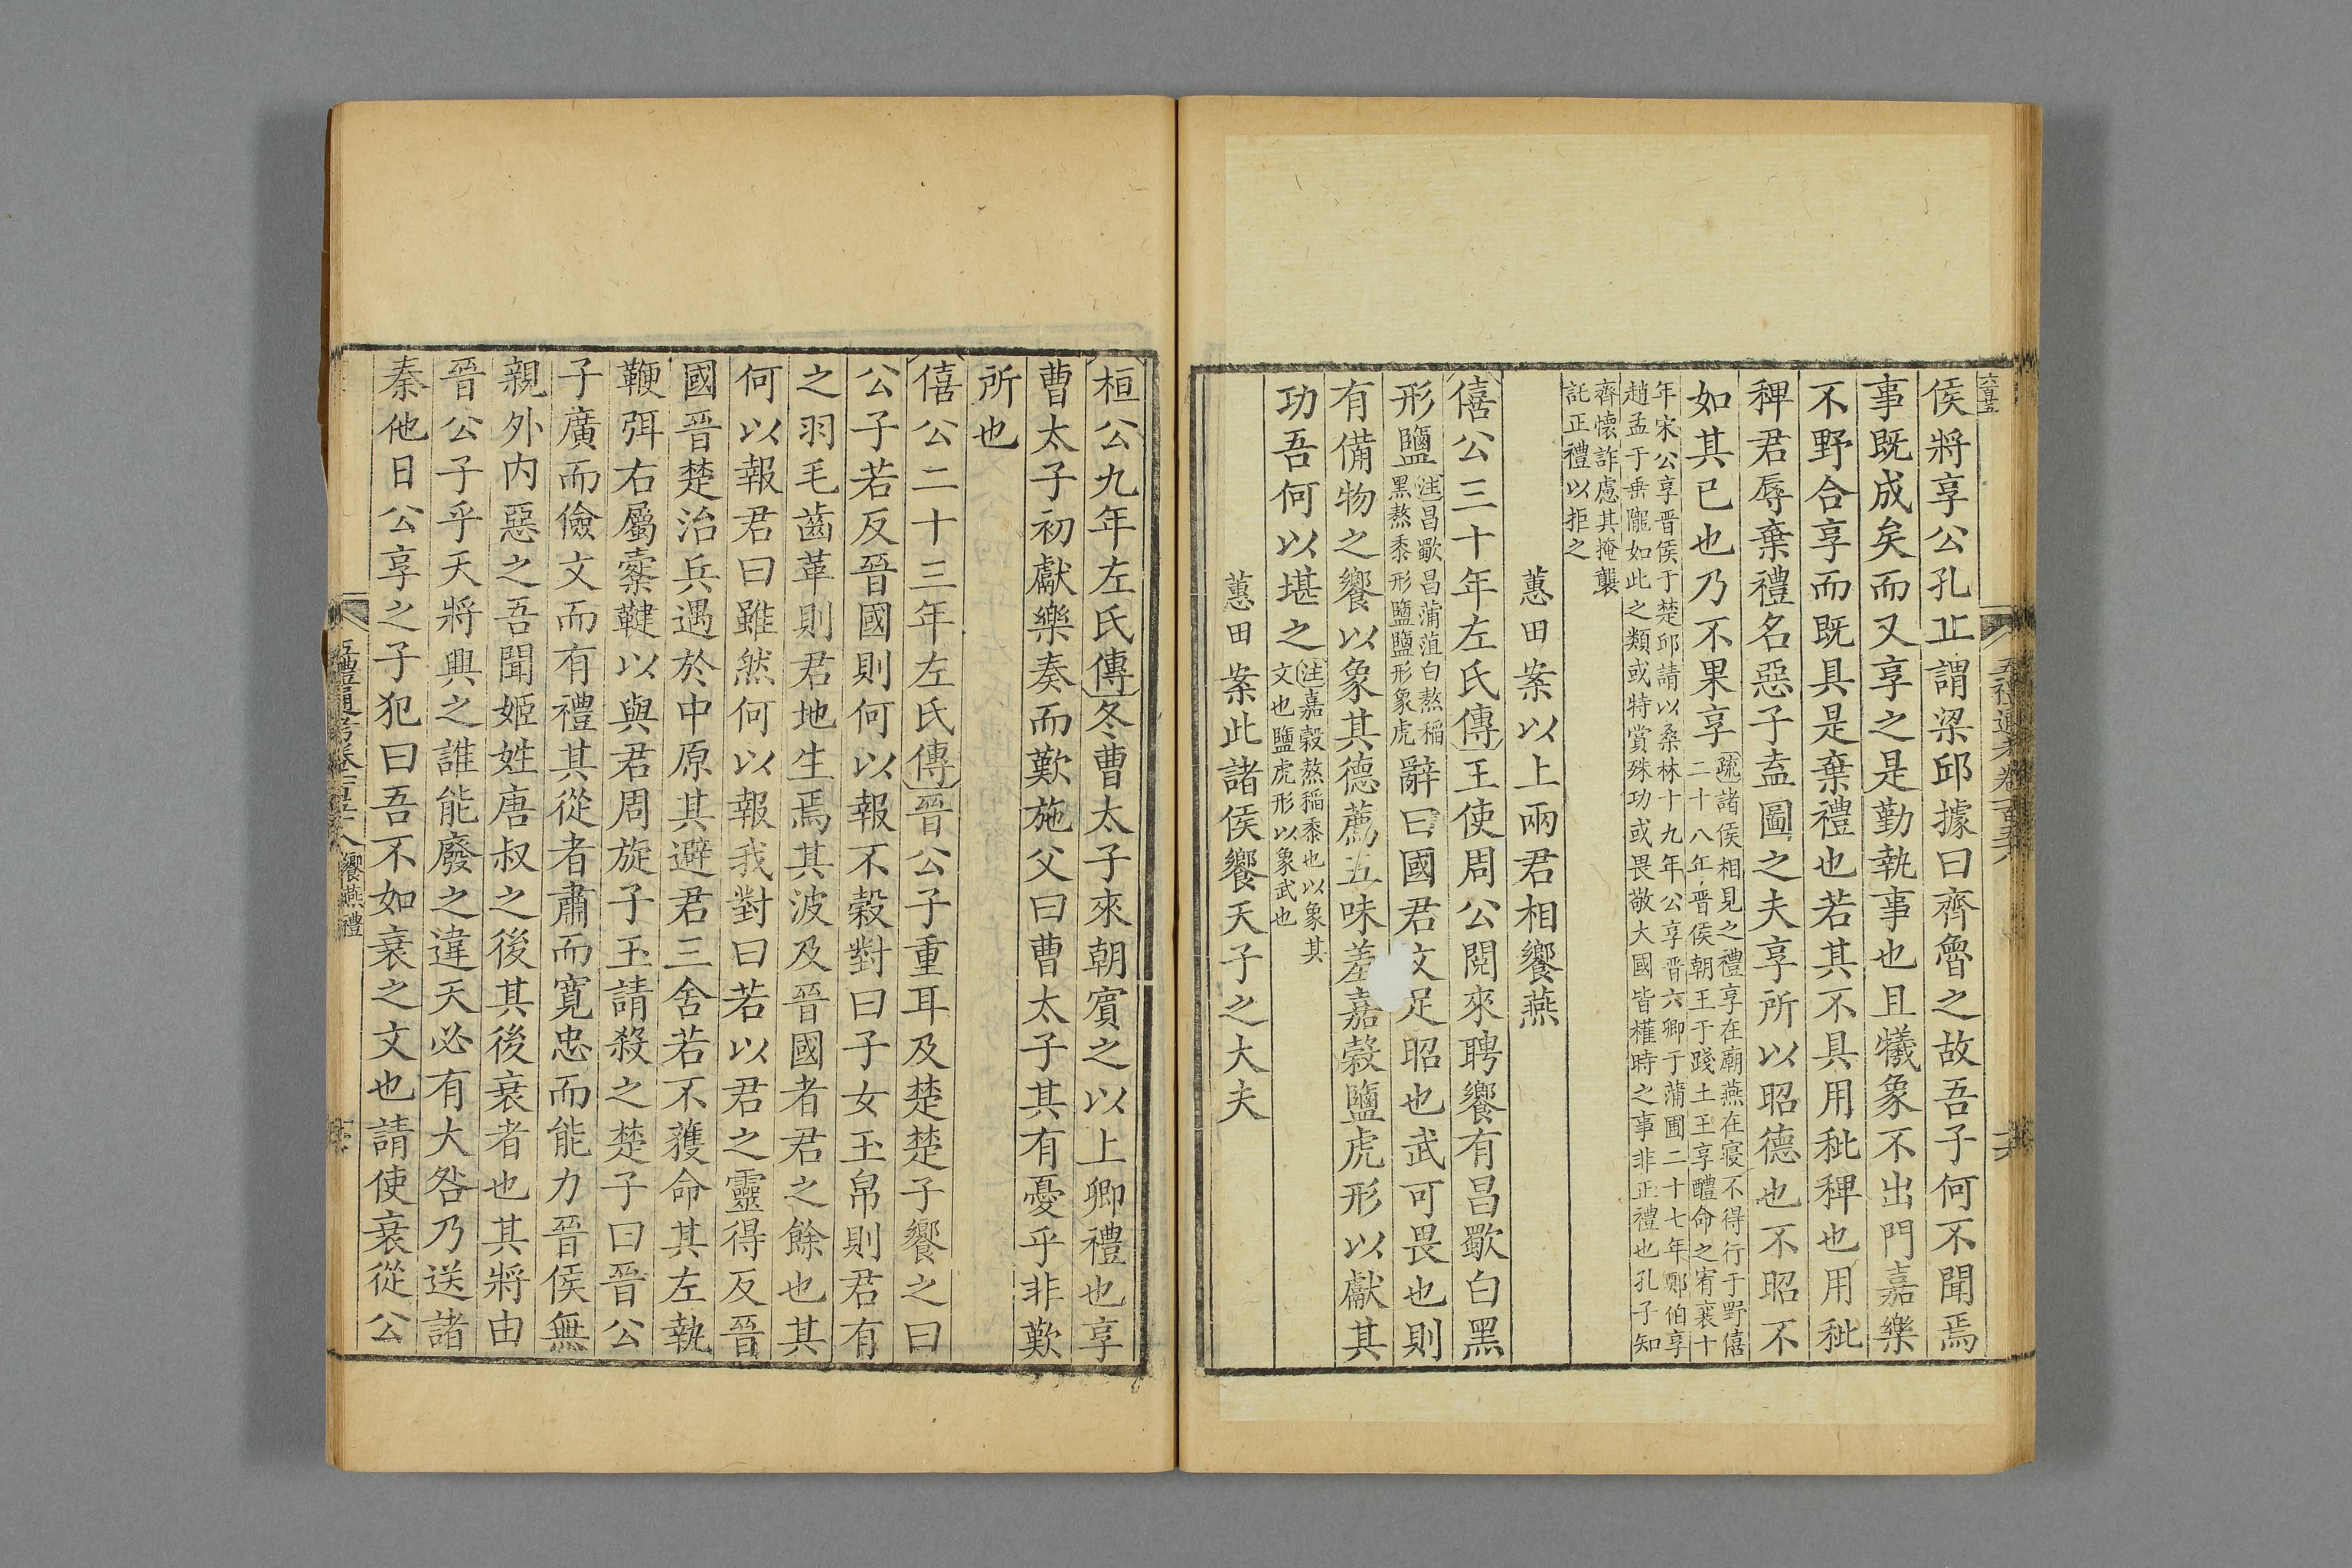 侯將享公孔丘謂梁邱據曰齊魯之故吾子何不聞焉
事既成矣而又享之是勤執事也且犧象不出門嘉樂
不野合享而既具是棄禮也若其不具用秕稗也用秕
稗君辱棄禮名惡子盍圖之夫享所以昭德也不昭不
如其已也乃不果享
疏諸侯相見之禮享在廟燕在寢不得行于野僖
二十八年晉侯朝王于踐土王享醴命之宥襄十
年宋公享晉侯于楚邱請以桑林十九年公享晉六卿于蒲圃二十七年鄭伯享
趙孟于垂隴如此之類或特賞殊功或畏敬大國皆權時之事非正禮也孔子知
齊懷詐慮其掩襲
託正禮以拒之
蕙田案以上兩君相饗燕
僖公三十年左氏傳王使周公閱來聘饗有昌歜白黑
形鹽
注昌歜昌蒲菹白熬稻
黑熬黍形鹽鹽形象虎
辭曰國君文足昭也武可畏也則
有備物之饗以象其德薦五味羞嘉穀鹽虎形以獻其
功吾何以堪之
注嘉穀熬稻黍也以象其
文也鹽虎形以象武也
蕙田案此諸侯饗天子之大夫
桓公九年左氏傳冬曹太子來朝賓之以上卿禮也享
曹太子初獻樂奏而歎施父曰曹太子其有憂乎非歎
所也
僖公二十三年左氏傳晉公子重耳及楚楚子饗之曰
公子若反晉國則何以報不穀對曰子女玉帛則君有
之羽毛齒革則君地生焉其波及晉國者君之餘也其
何以報君曰雖然何以報我對曰若以君之靈得反晉
國晉楚治兵遇於中原其避君三舍若不獲命其左執
鞭弭右屬櫜鞬以與君周旋子玉請殺之楚子曰晉公
子廣而儉文而有禮其從者肅而寬忠而能力晉侯無
親外內惡之吾聞姬姓唐叔之後其後衰者也其將由
晉公子乎天將興之誰能廢之違天必有大咎乃送諸
秦他日公享之子犯曰吾不如衰之文也請使衰從公
五禮通考卷一百五十八 饗燕禮